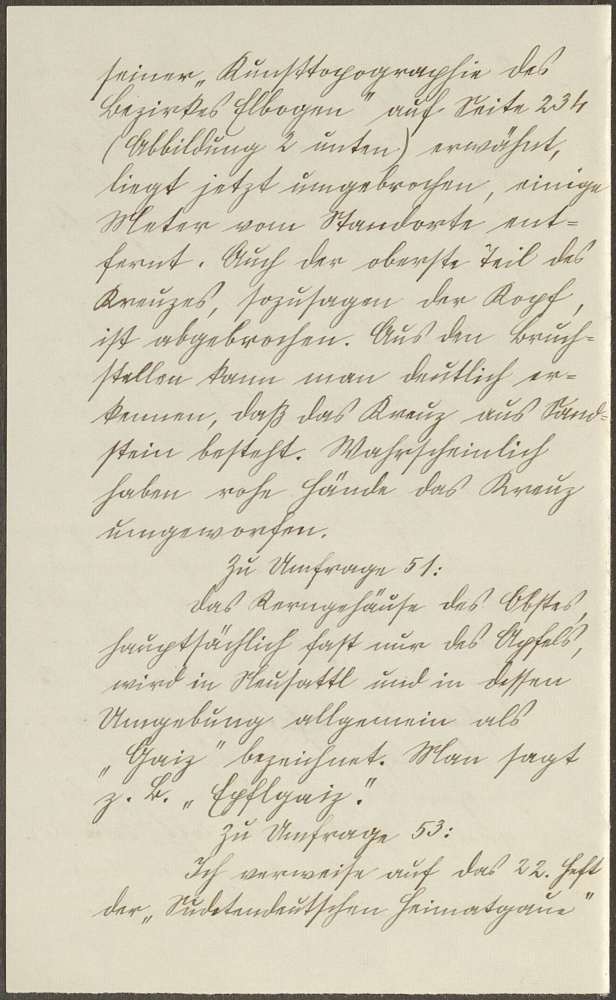 seiner „Kunsttopographie des
Bezirkes Elbogen" auf Seite 234
(Abbildung 2 unten) erwähnt,
liegt jetzt umgebrochen, einige
Meter vom Standorte ent=
fernt. Auch der oberste Teil des
Kreuzes, sozusagen der Kopf,
ist abgebrochen. Aus den Bruch=
stellen kann man deutlich er=
kennen, daß das Kreuz aus Sand=
stein besteht. Wahrscheinlich
haben rohe Hände das Kreuz
umgeworfen.
Zu Umfrage 51:
Das Kerngehäuse des Obstes,
hauptsächlich fast nur des Apfels,
wird in Neusattl und in dessen
Umgebung allgemein als
„Gaiz" bezeichnet. Man sagt
z. B. „Epflgaiz."
Zu Umfrage 53:
Ich verweise auf das 22. Heft
der „Sudetendeutschen Heimatgaue"